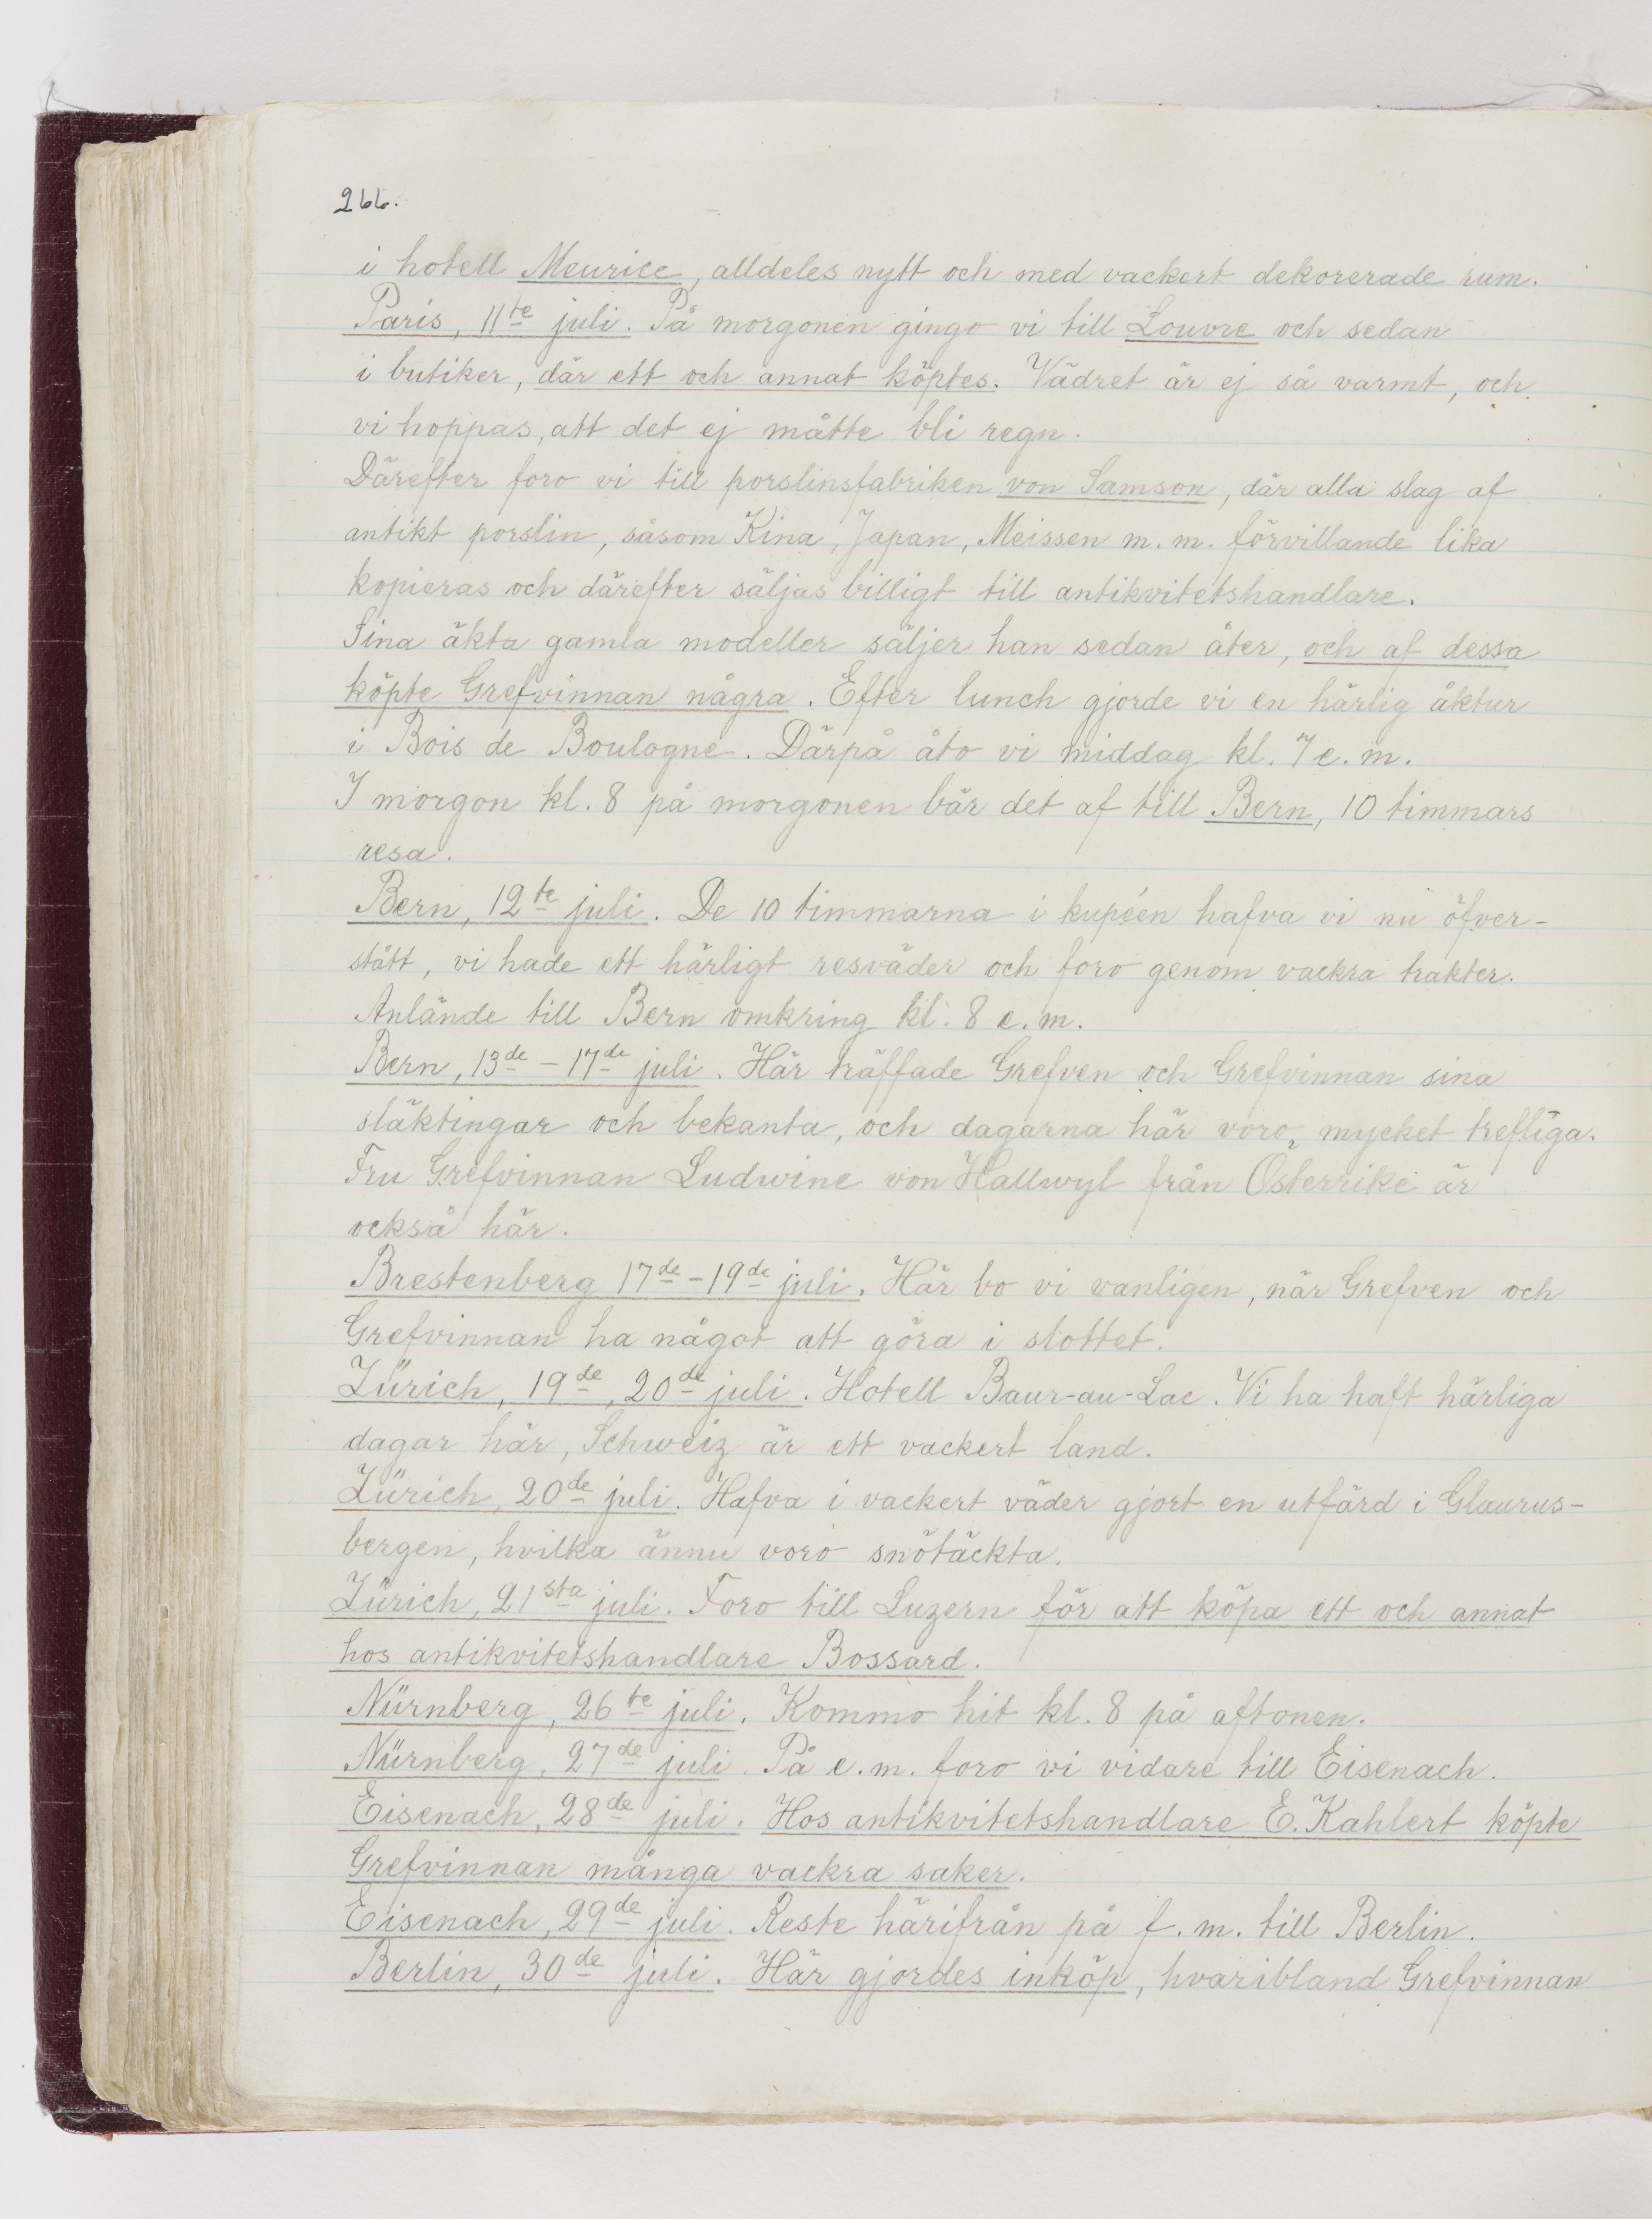 266.
i hotell Meurice, alldeles nytt och med vackert dekorerade rum.
Paris, 11te juli. På morgonen gingo vi till Louvre och sedan
i butiker, där ett och annat köptes. Vädret är ej så varmt, och
vi hoppas, att det ej måtte bli regn.
Därefter foro vi till porslinsfabriken von Samson, där alla slag af
antikt porslin, såsom Kina, Japan, Meissen m. m. förvillande lika
kopieras och därefter säljas billigt till antikvitetshandlare.
Sina äkta gamla modeller säljer han sedan åter, och af dessa
köpte Grefvinnan några. Efter lunch gjorde vi en härlig åktur
i Bois de Boulogne. Därpå åto vi middag kl. 7 e. m.
I morgon kl. 8 på morgonen bär det af till Bern, 10 timmars
resa.
Bern, 12te juli. De 10 timmarna i kupéen hafva vi nu öfver-
stått, vi hade ett härligt resväder och foro genom vackra trakter.
Anlände till Bern omkring kl. 8 e. m.
Bern, 13de - 17de juli. Här träffade Grefven och Grefvinnan sina
släktingar och bekanta, och dagarna här voro mycket trefliga.
Fru Grefvinnan Ludwine von Hallwyl från Österrike är
också här.
Brestenberg 17de - 19de juli. Här bo vi vanligen, när Grefven och
Grefvinnan ha något att göra i slottet.
Zürich, 19de, 20de juli. Hotell Baur-au-Lac. Vi ha haft härliga
dagar här, Schweiz är ett vackert land.
Zürich, 20de juli. Hafva i vackert väder gjort en utfärd i Glaurus-
bergen, hvilka ännu voro snötäckta.
Zürich, 21sta juli. Foro till Luzern för att köpa ett och annat
hos antikvitetshandlare Bossard.
Nürnberg, 26te juli. Kommo hit kl. 8 på aftonen.
Nürnberg, 27de juli. På e. m. foro vi vidare till Eisenach.
Eisenach, 28de juli. Hos antikvitetshandlare E. Kahlert köpte
Grefvinnan många vackra saker.
Eisenach, 29de juli. Reste härifrån på f. m. till Berlin.
Berlin, 30de juli. Här gjordes inköp, hvaribland Grefvinnan